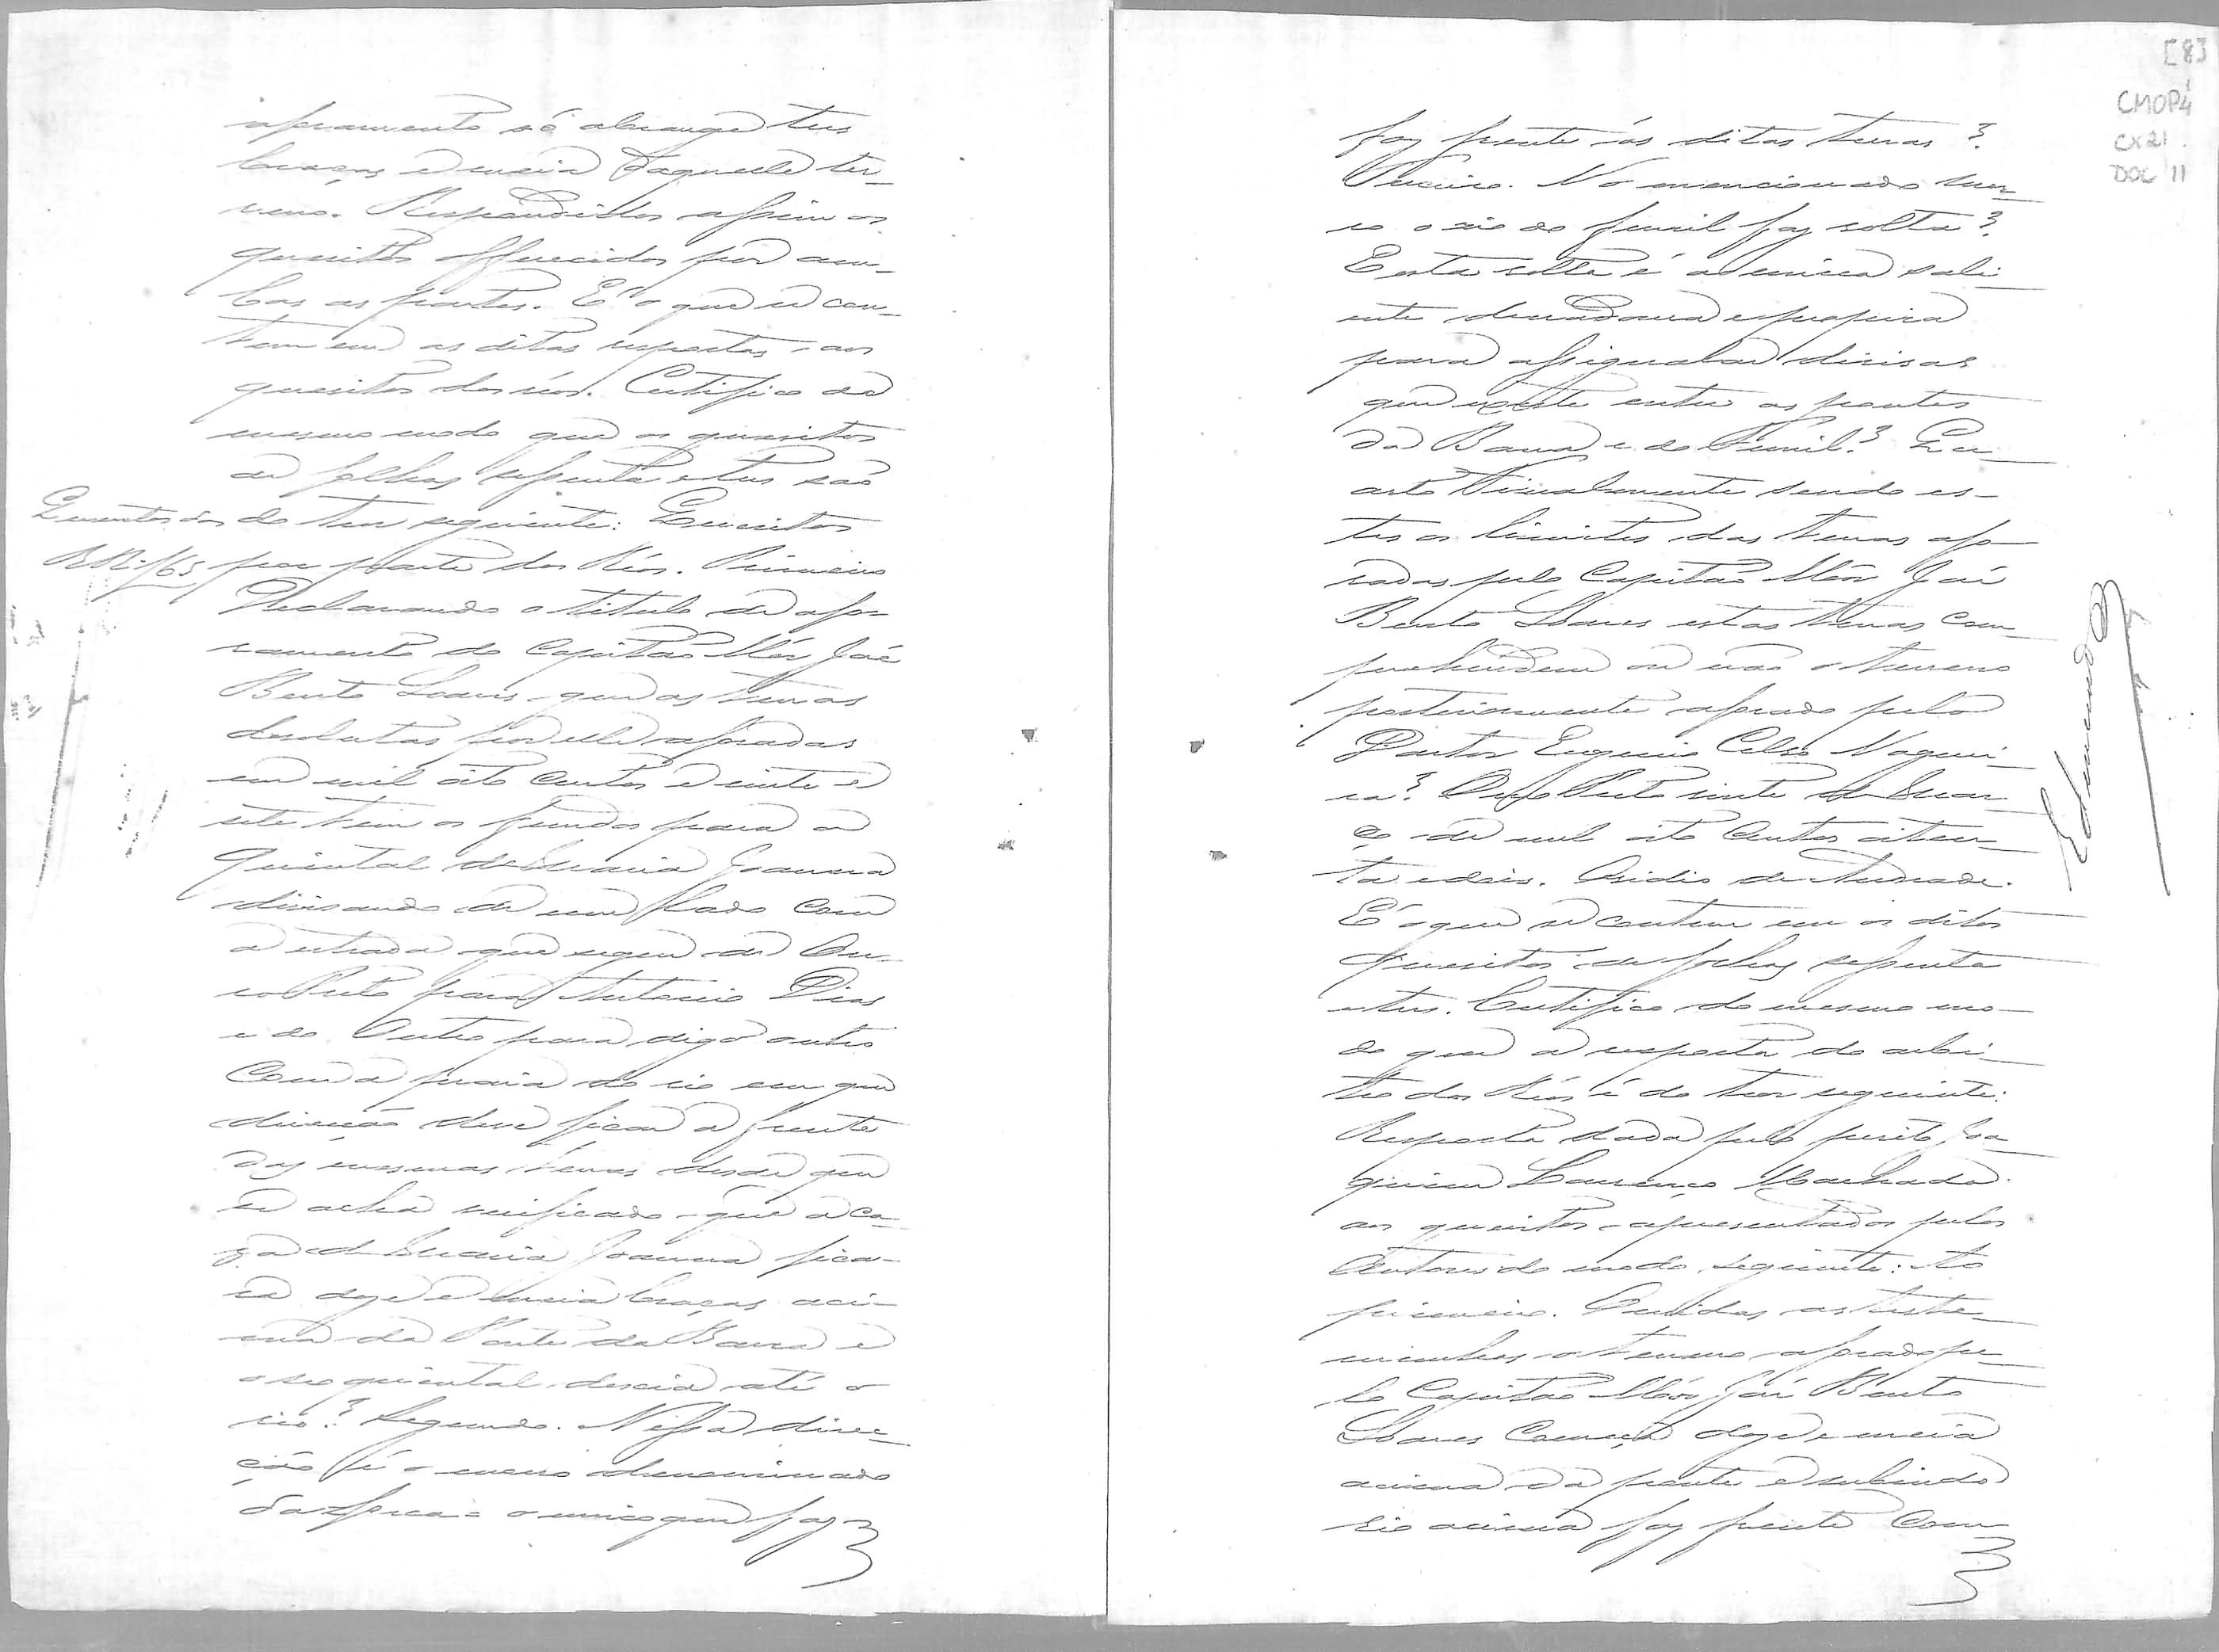 aforamento só abrange tres
braças e meia daquelle ter-
reno. Respondidos assim os
quesitos offerecidos por am-
bas as partes. É o que se con-
tem em as ditas respostas aos
quesitos dos réos. Certifico do
mesmo modo que os quesitos
de folhas sessenta e tres são
do teor seguinte: Quesitos
Quesitos dos
RR. f 63
por parte dos Réos. Primeiro
Declarando o titulo de afo-
ramento do Capitão Mór José
Bento Soares que as terras
devolutas por elle aforadas
em mil oito centos e vinte e
sete tem os fundos para o
quintal de Maria Joanna
divisando de um lado com
a estrada que segue de Ou-
ro Preto para Antonio Dias
e do Outro para digo outro
com a praia do rio em que
direcção deve ficar a frente
das mesmas terras desde que
se acha verificado que a ca-
za de Maria Joanna fica-
va doze e meia braças aci-
ma da Ponte da Barra e
o seo quintal descia até o
rio? Segundo. Nessa direc-
ção é o morro denominado
da Forca o unico que faz
[8]
CMOP4
CX21
DOC 11
faz frente ás ditas terras?
Terceiro. No mencionado mor-
ro o rio do Funil faz volta?
E esta volta é a unica sali-
ente duradoura e propria
para assignalar divisas
que existe entre as pontes
da Barra e do Funil? Qu-
arto Finalmente sendo es-
tes os limites das terras afo-
radas pelo Capitão Mór José
Bento Soares estas terras com-
prehendem ou não o terreno
posteriormente aforado pelo
Doutor Eugenio Celso Noguei-
ra? Ouro Preto vinte de Mar-
ço de mil oito centos oiten-
ta e dois. Ovidio de Andrade.
É o que se contem em os ditos
quesitos de folhas sessenta
e tres. Certifico do mesmo mo-
do que a resposta do arbi-
tro dos Réos é do teor seguinte:
Resposta dada pelo perito Joa-
quim Lourenço Machado
aos quesitos apresentados pelos
Autores do modo seguinte: Ao
primeiro. Ouvidas as teste-
munhas o terreno aforado pe-
lo Capitão Mór José Bento
Soares começa doze e meia
acima da ponte e subindo
rio acima faz frente com
Edmundo